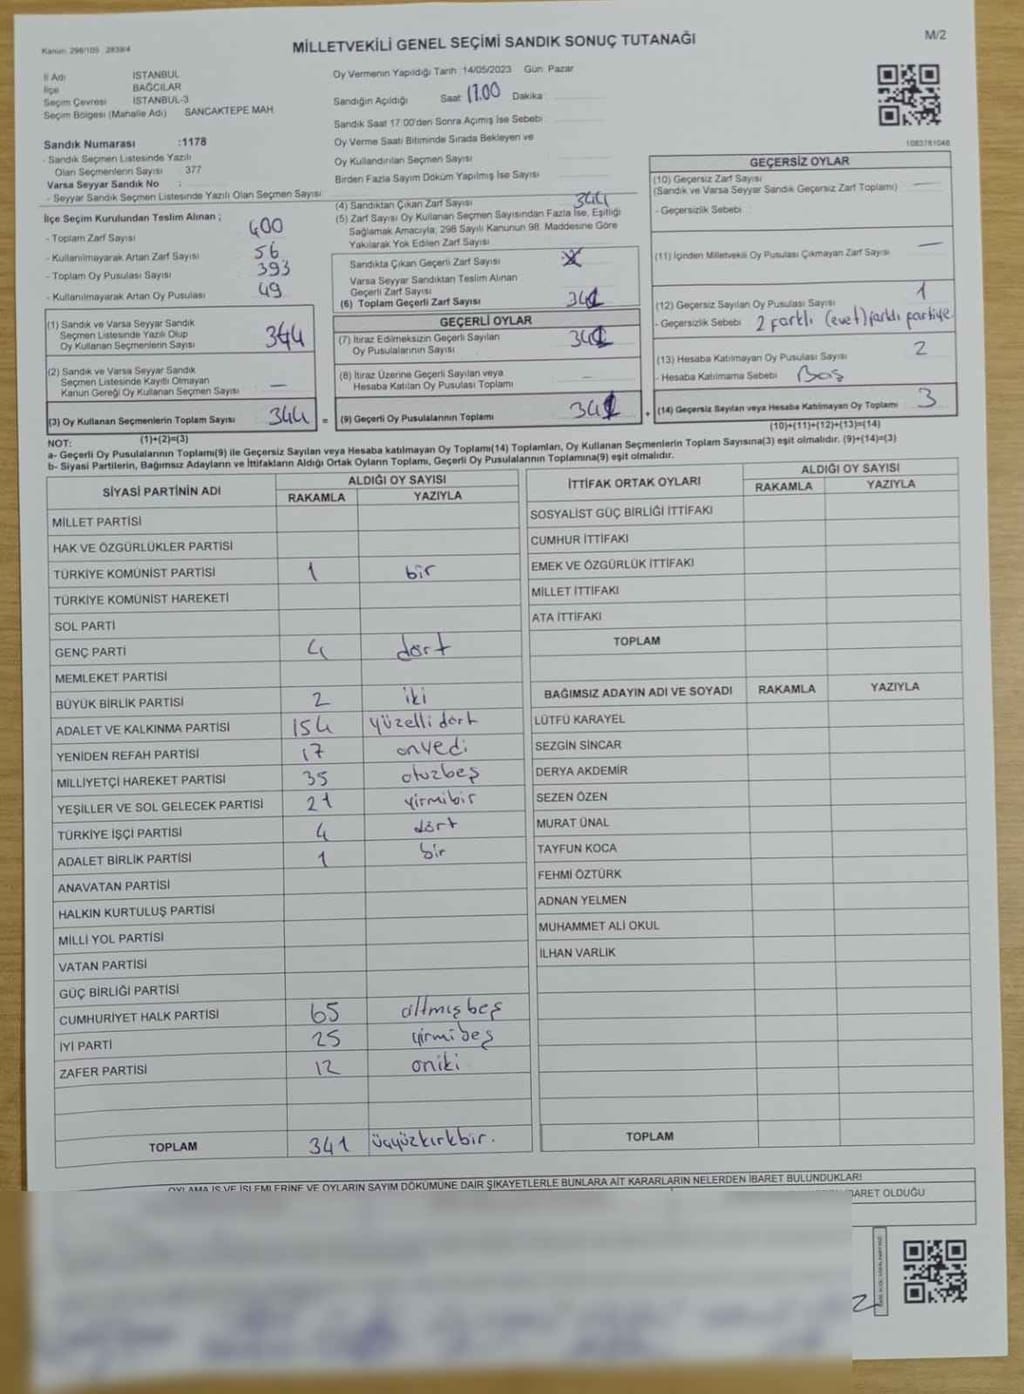 Kanun: 298/105 2839/4
MİLLETVEKİLİ GENEL SEÇİMİ SANDIK SONUÇ TUTANAĞI
M/2
İl Adı İSTANBUL
İlçe BAĞCILAR
Seçim Çevresi İSTANBUL-3
Seçim Bölgesi (Mahalle Adı) SANCAKTEPE MAH.
Sandık Numarası :1178
- Sandık Seçmen Listesinde Yazılı
Olan Seçmenlerin Sayısı 377
Varsa Seyyar Sandık No :
- Seyyar Sandık Seçmen Listesinde Yazılı Olan Seçmen Sayısı
Oy Vermenin Yapıldığı Tarih :14/05/2023 Gün: Pazar
Sandığın Açıldığı Saat 17.00 Dakika
Sandık Saat 17:00'den Sonra Açımış İse Sebebi
Oy Verme Saati Bitiminde Sırada Bekleyen ve
Oy Kullandırılan Seçmen Sayısı
Birden Fazla Sayım Döküm Yapılmış İse Sayısı
1083781048
İlçe Seçim Kurulundan Teslim Alınan ;
- Toplam Zarf Sayısı 400
- Kullanılmayarak Artan Zarf Sayısı 56
- Toplam Oy Pusulası Sayısı 393
- Kullanılmayarak Artan Oy Pusulası 49
(1) Sandık ve Varsa Seyyar Sandık
Seçmen Listesinde Yazılı Olup
Oy Kullanan Seçmenlerin Sayısı 344
(2) Sandık ve Varsa Seyyar Sandık
Seçmen Listesinde Kayıtlı Olmayan
Kanun Gereği Oy Kullanan Seçmen Sayısı —
(3) Oy Kullanan Seçmenlerin Toplam Sayısı 344 =
(1)+(2)=(3)
(4) Sandıktan Çıkan Zarf Sayısı 344
(5) Zarf Sayısı Oy Kullanan Seçmen Sayısından Fazla İse, Eşitliği
Sağlamak Amacıyla; 298 Sayılı Kanunun 98. Maddesine Göre
Yakılarak Yok Edilen Zarf Sayısı
Sandıkta Çıkan Geçerli Zarf Sayısı
Varsa Seyyar Sandıktan Teslim Alınan
Geçerli Zarf Sayısı
(6) Toplam Geçerli Zarf Sayısı
GEÇERLİ OYLAR
(7) İtiraz Edilmeksizin Geçerli Sayılan
Oy Pusulalarının Sayısı 341
(8) İtiraz Üzerine Geçerli Sayılan veya
Hesaba Katılan Oy Pusulası Toplamı —
(9) Geçerli Oy Pusulalarının Toplamı 341 +
GEÇERSİZ OYLAR
(10) Geçersiz Zarf Sayısı
(Sandık ve Varsa Seyyar Sandık Geçersiz Zarf Toplamı) —
- Geçersizlik Sebebi
(11) İçinden Milletvekili Oy Pusulası Çıkmayan Zarf Sayısı —
(12) Geçersiz Sayılan Oy Pusulası Sayısı 1
- Geçersizlik Sebebi 2 farklı (evet) farklı partiye
(13) Hesaba Katılmayan Oy Pusulası Sayısı 2
- Hesaba Katılmama Sebebi Boş
(14) Geçersiz Sayılan veya Hesaba Katılmayan Oy Toplamı 3
(10)+(11)+(12)+(13)=(14)
NOT:
a- Geçerli Oy Pusulasının Toplamı(9) ile Geçersiz Sayılan veya Hesaba katılmayan Oy Toplamı(14) Toplamları, Oy Kullanan Seçmenlerin Toplam Sayısına(3) eşit olmalıdır. (9)+(14)=(3)
b- Siyasi Partilerin, Bağımsız Adayların ve İttifakların Aldığı Ortak Oyların Toplamı, Geçerli Oy Pusulalarının Toplamına(9) eşit olmalıdır.
SİYASİ PARTİNİN ADI ALDIĞI OY SAYISI
RAKAMLA YAZIYLA
MİLLET PARTİSİ
HAK VE ÖZGÜRLÜKLER PARTİSİ
TÜRKİYE KOMÜNİST PARTİSİ 1 bir
TÜRKİYE KOMÜNİST HAREKETİ
SOL PARTİ
GENÇ PARTİ 4 dört
MEMLEKET PARTİSİ
BÜYÜK BİRLİK PARTİSİ 2 iki
ADALET VE KALKINMA PARTİSİ 154 yüzelli dört
YENİDEN REFAH PARTİSİ 17 onyedi
MİLLİYETÇİ HAREKET PARTİSİ 35 otuzbeş
YEŞİLLER VE SOL GELECEK PARTİSİ 21 yirmibir
TÜRKİYE İŞÇİ PARTİSİ 4 dört
ADALET BİRLİK PARTİSİ 1 bir
ANAVATAN PARTİSİ
HALKIN KURTULUŞ PARTİSİ
MİLLİ YOL PARTİSİ
VATAN PARTİSİ
GÜÇ BİRLİĞİ PARTİSİ
CUMHURİYET HALK PARTİSİ 65 altmışbeş
İYİ PARTİ 25 yirmibeş
ZAFER PARTİSİ 12 oniki
TOPLAM 341 üçyüzkırkbir.
İTTİFAK ORTAK OYLARI ALDIĞI OY SAYISI
RAKAMLA YAZIYLA
SOSYALİST GÜÇ BİRLİĞİ İTTİFAKI
CUMHUR İTTİFAKI
EMEK VE ÖZGÜRLÜK İTTİFAKI
MİLLET İTTİFAKI
ATA İTTİFAKI
TOPLAM
BAĞIMSIZ ADAYIN ADI VE SOYADI RAKAMLA YAZIYLA
LÜTFÜ KARAYEL
SEZGİN SİNCAR
DERYA AKDEMİR
SEZEN ÖZEN
MURAT ÜNAL
TAYFUN KOCA
FEHMİ ÖZTÜRK
ADNAN YELMEN
MUHAMMET ALİ OKUL
İLHAN VARLIK
TOPLAM
OYLAMA İŞ VE İŞLEMLERİNE VE OYLARIN SAYIM DÖKÜMÜNE DAİR ŞİKAYETLERLE BUNLARA AİT KARARLARIN NELERDEN İBARET BULUNDUKLARI
İBARET OLDUĞU